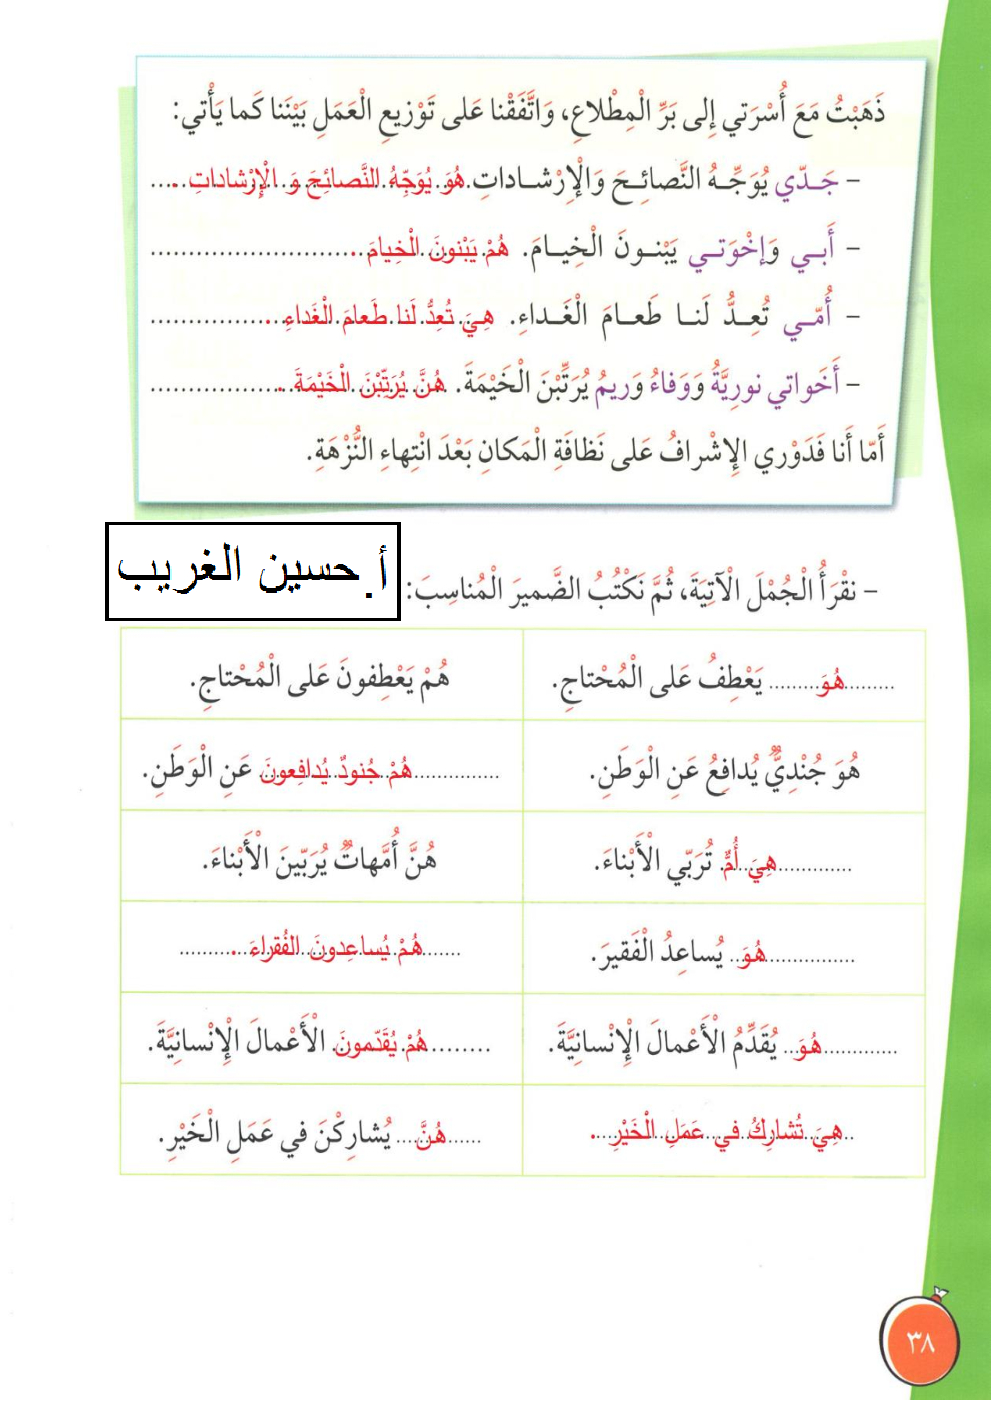 ذَهَبْتُ مَعَ أُسْرَتي إِلى بَرِّ الْمِطْلاعِ، وَاتَّفَقْنا عَلى تَوْزيعِ الْعَمَلِ بَيْنَنا كَما يَأْتي:
- جَدّي يُوَجِّهُ النَّصائِحَ وَالْإِرْشاداتِ. هُوَ يُوَجِّهُ النَّصائِحَ وَ الْإِرْشاداتِ
- أَبي وَإِخْوَتي يَبْنونَ الْخِيامَ. هُمْ يَبْنونَ الْخِيامَ.
- أُمّي تُعِدُّ لَنا طَعامَ الْغَداءِ. هِيَ تُعِدُّ لَنا طَعامَ الْغَداءِ.
- أَخَواتي نورِيَّةُ وَوَفاءُ وَريمُ يُرَتِّبْنَ الْخَيْمَةَ. هُنَّ يُرَتِّبْنَ الْخَيْمَةَ.
أَمّا أَنا فَدَوْري الإِشْرافُ عَلى نَظافَةِ الْمَكانِ بَعْدَ انْتِهاءِ النُّزْهَةِ.
أ. حسين الغريب
- نَقْرَأُ الْجُمَلَ الْآتِيَةَ، ثُمَّ نَكْتُبُ الضَّميرَ الْمُناسِبَ:
هُوَ يَعْطِفُ عَلى الْمُحْتاجِ. هُمْ يَعْطِفونَ عَلى الْمُحْتاجِ.
هُوَ جُنْدِيٌّ يُدافِعُ عَنِ الْوَطَنِ. هُمْ جُنودٌ يُدافِعونَ عَنِ الْوَطَنِ.
هِيَ أُمٌّ تُرَبّي الْأَبْناءَ. هُنَّ أُمَّهاتٌ يُرَبّينَ الْأَبْناءَ.
هُوَ يُساعِدُ الْفَقيرَ. هُمْ يُساعِدونَ الفُقَراءَ.
هُوَ يُقَدِّمُ الْأَعْمالَ الْإِنْسانِيَّةَ. هُمْ يُقَدّمونَ الْأَعْمالَ الْإِنْسانِيَّةَ.
هِيَ تُشارِكُ في عَمَلِ الْخَيْرِ. هُنَّ يُشارِكْنَ في عَمَلِ الْخَيْرِ.
٣٨